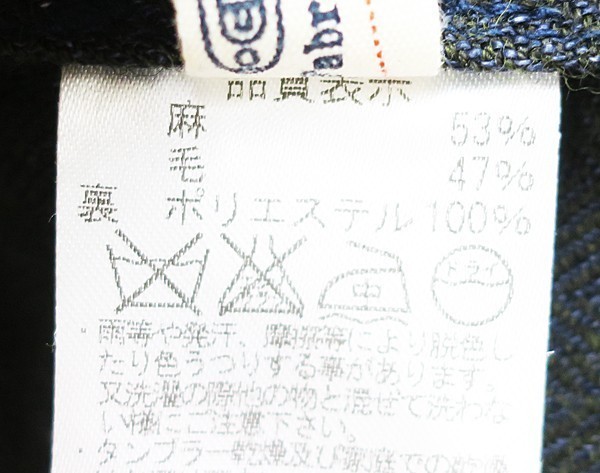 品質表示
麻 53%
毛 47%
裏 ポリエステル 100%
中 ドライ
雨等や発汗、摩擦等により脱色し
たり色うつりする事があります。
又洗濯の際他の物と混ぜて洗わな
い様にご注意下さい。
タンブラー乾燥及び家庭での乾燥